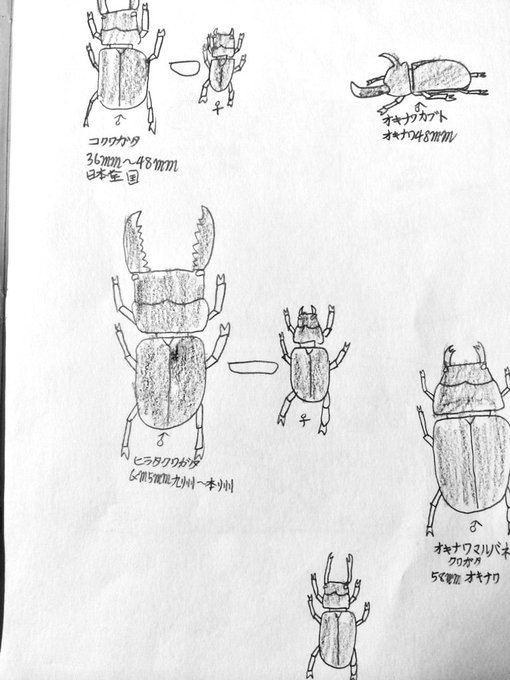 ♂
♀
コクワガタ
36mm〜48mm
日本全国
♂
オキナワカブト
オキナワ48mm
♂
♀
ヒラタクワガタ
九州〜本州
♂
オキナワマルバネ
クワガタ
オキナワ